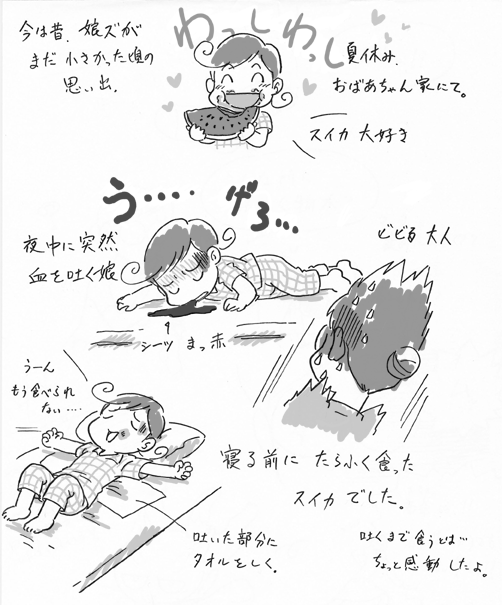 今は昔、娘ズが
まだ小さかった頃の
思い出。
わっしわっし
夏休み、
おばあちゃん家にて。
スイカ大好き
う‥‥
げろ…
夜中に突然
血を吐く娘
ビビる大人
シーツ まっ赤
うーん
もう食べられ
ない…‥
寝る前に たらふく食った
スイカ でした。
吐いた部分に
タオルをしく。
吐くまで食うとは…
ちょっと感動したよ。